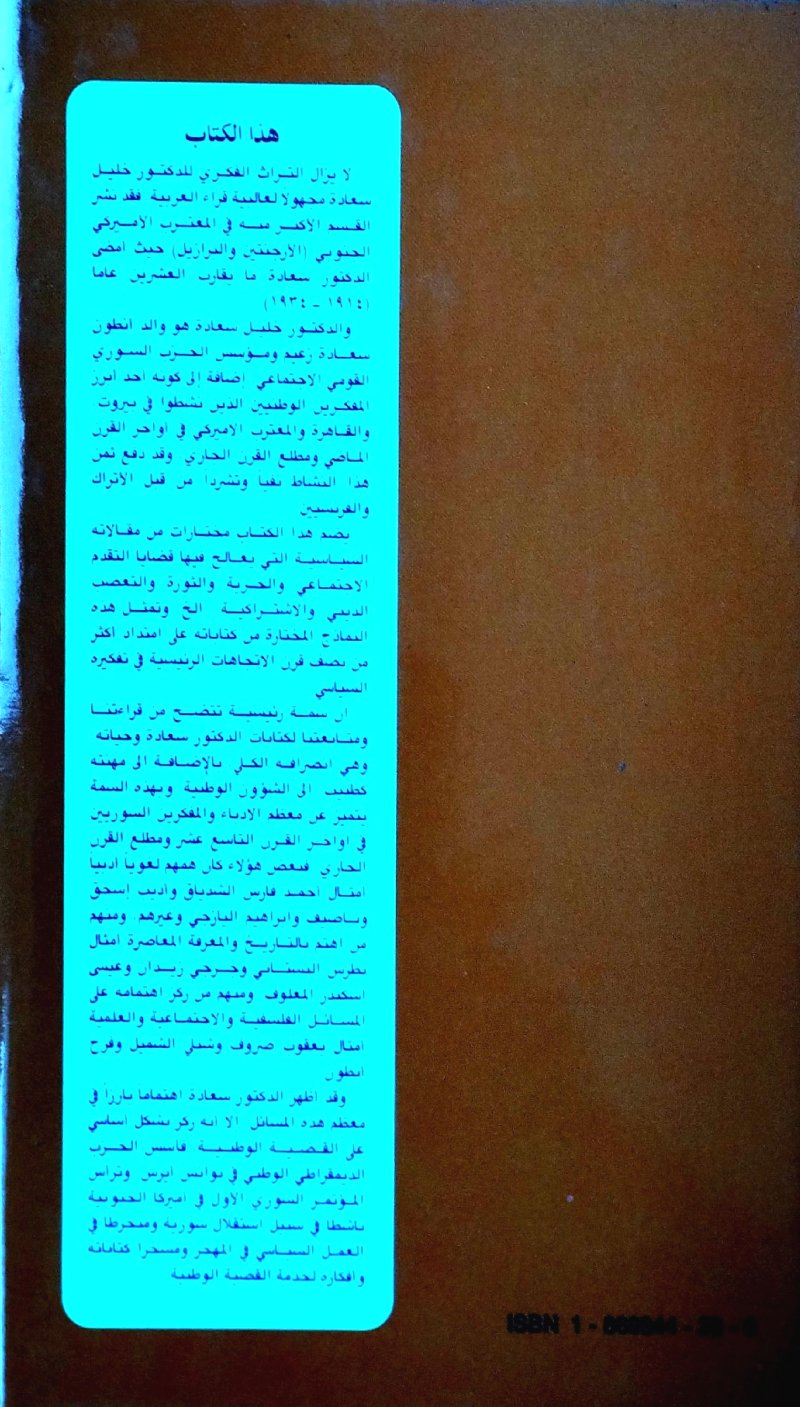 هذا الكتاب
لا يزال التراث الفكري للدكتور خليل
سعادة مجهولا لغالبية قراء العربية فقد نشر
القسم الأكبر منه في المغترب الأميركي
الجنوبي (الأرجنتين والبرازيل) حيث أمضى
الدكتور سعادة ما يقارب العشرين عاما
(١٩١٤ - ١٩٣٤)
والدكتور خليل سعادة هو والد انطون
سعادة زعيم ومؤسس الحزب السوري
القومي الاجتماعي إضافة إلى كونه احد ابرز
المفكرين الوطنيين الذين نشطوا في بيروت
والقاهرة والمغترب الاميركي في أواخر القرن
الماضي ومطلع القرن الجاري وقد دفع ثمن
هذا النشاط نفيا وتشردا من قبل الأتراك
والفرنسيين
يضم هذا الكتاب مختارات من مقالاته
السياسية التي يعالج فيها قضايا التقدم
الاجتماعي والحرية والثورة والتعصب
الديني والاشتراكية الخ وتمثل هذه
النماذج المختارة من كتاباته على امتداد أكثر
من نصف قرن الاتجاهات الرئيسية في تفكيره
السياسي
ان سمة رئيسية تتضح من قراءتنا
ومتابعتنا لكتابات الدكتور سعادة وحياته
وهي انصرافه الكلي بالإضافة الى مهنته
كطبيب الى الشؤون الوطنية وبهذه السمة
يتميز عن معظم الادباء والمفكرين السوريين
في اواخر القرن التاسع عشر ومطلع القرن
الجاري فبعض هؤلاء كان همهم لغوياً أدبيا
امثال احمد فارس الشدياق وأديب إسحق
وناصيف وابراهيم اليازجي وغيرهم ومنهم
من اهتم بالتاريخ والمعرفة المعاصرة امثال
بطرس البستاني وجرجي زيدان وعيسى
اسكندر المعلوف ومنهم من ركز اهتمامه على
المسائل الفلسفية والاجتماعية والعلمية
امثال يعقوب صروف وشبلي الشميل وفرح
انطون
وقد اظهر الدكتور سعادة اهتماما بارزاً في
معظم هذه المسائل الا انه ركز بشكل اساسي
على القضية الوطنية فأسس الحزب
الديمقراطي الوطني في بوانس ايرس وتراس
المؤتمر السوري الأول في اميركا الجنوبية
ناشطا في سبيل استقلال سورية ومنخرطا في
العمل السياسي في المهجر ومسخرا كتاباته
وافكاره لخدمة القضية الوطنية
ISBN 1 -